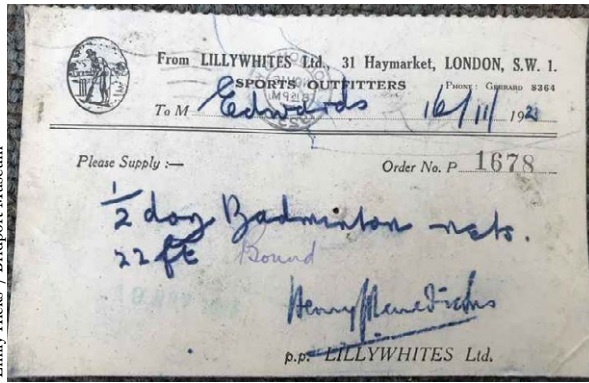 From LILLYWHITES Ltd., 31 Haymarket, LONDON, S.W. 1.
SPORTS OUTFITTERS
PHONE: GERRARD 8364
To M Edwards 16/11/192
Please Supply :—
Order No. P 1678
1/2 doz Badminton nets.
22 ft Bound
Henry
p.p. LILLYWHITES Ltd.
Emily Hicks / Bridport Museum